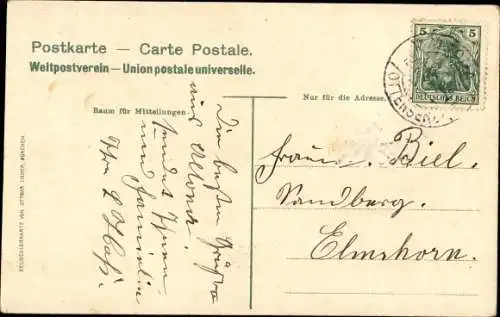 Postkarte — Carte Postale.
Weltpostverein — Union postale universelle.
Raum für Mitteilungen
Nur für die Adresse
5 5
DEUTSCHES REICH
OTTENSEN
Die besten Grüße
aus Altona
sendet Ihnen
und Familie
Frau Biel.
Sandberg.
Elmshorn.